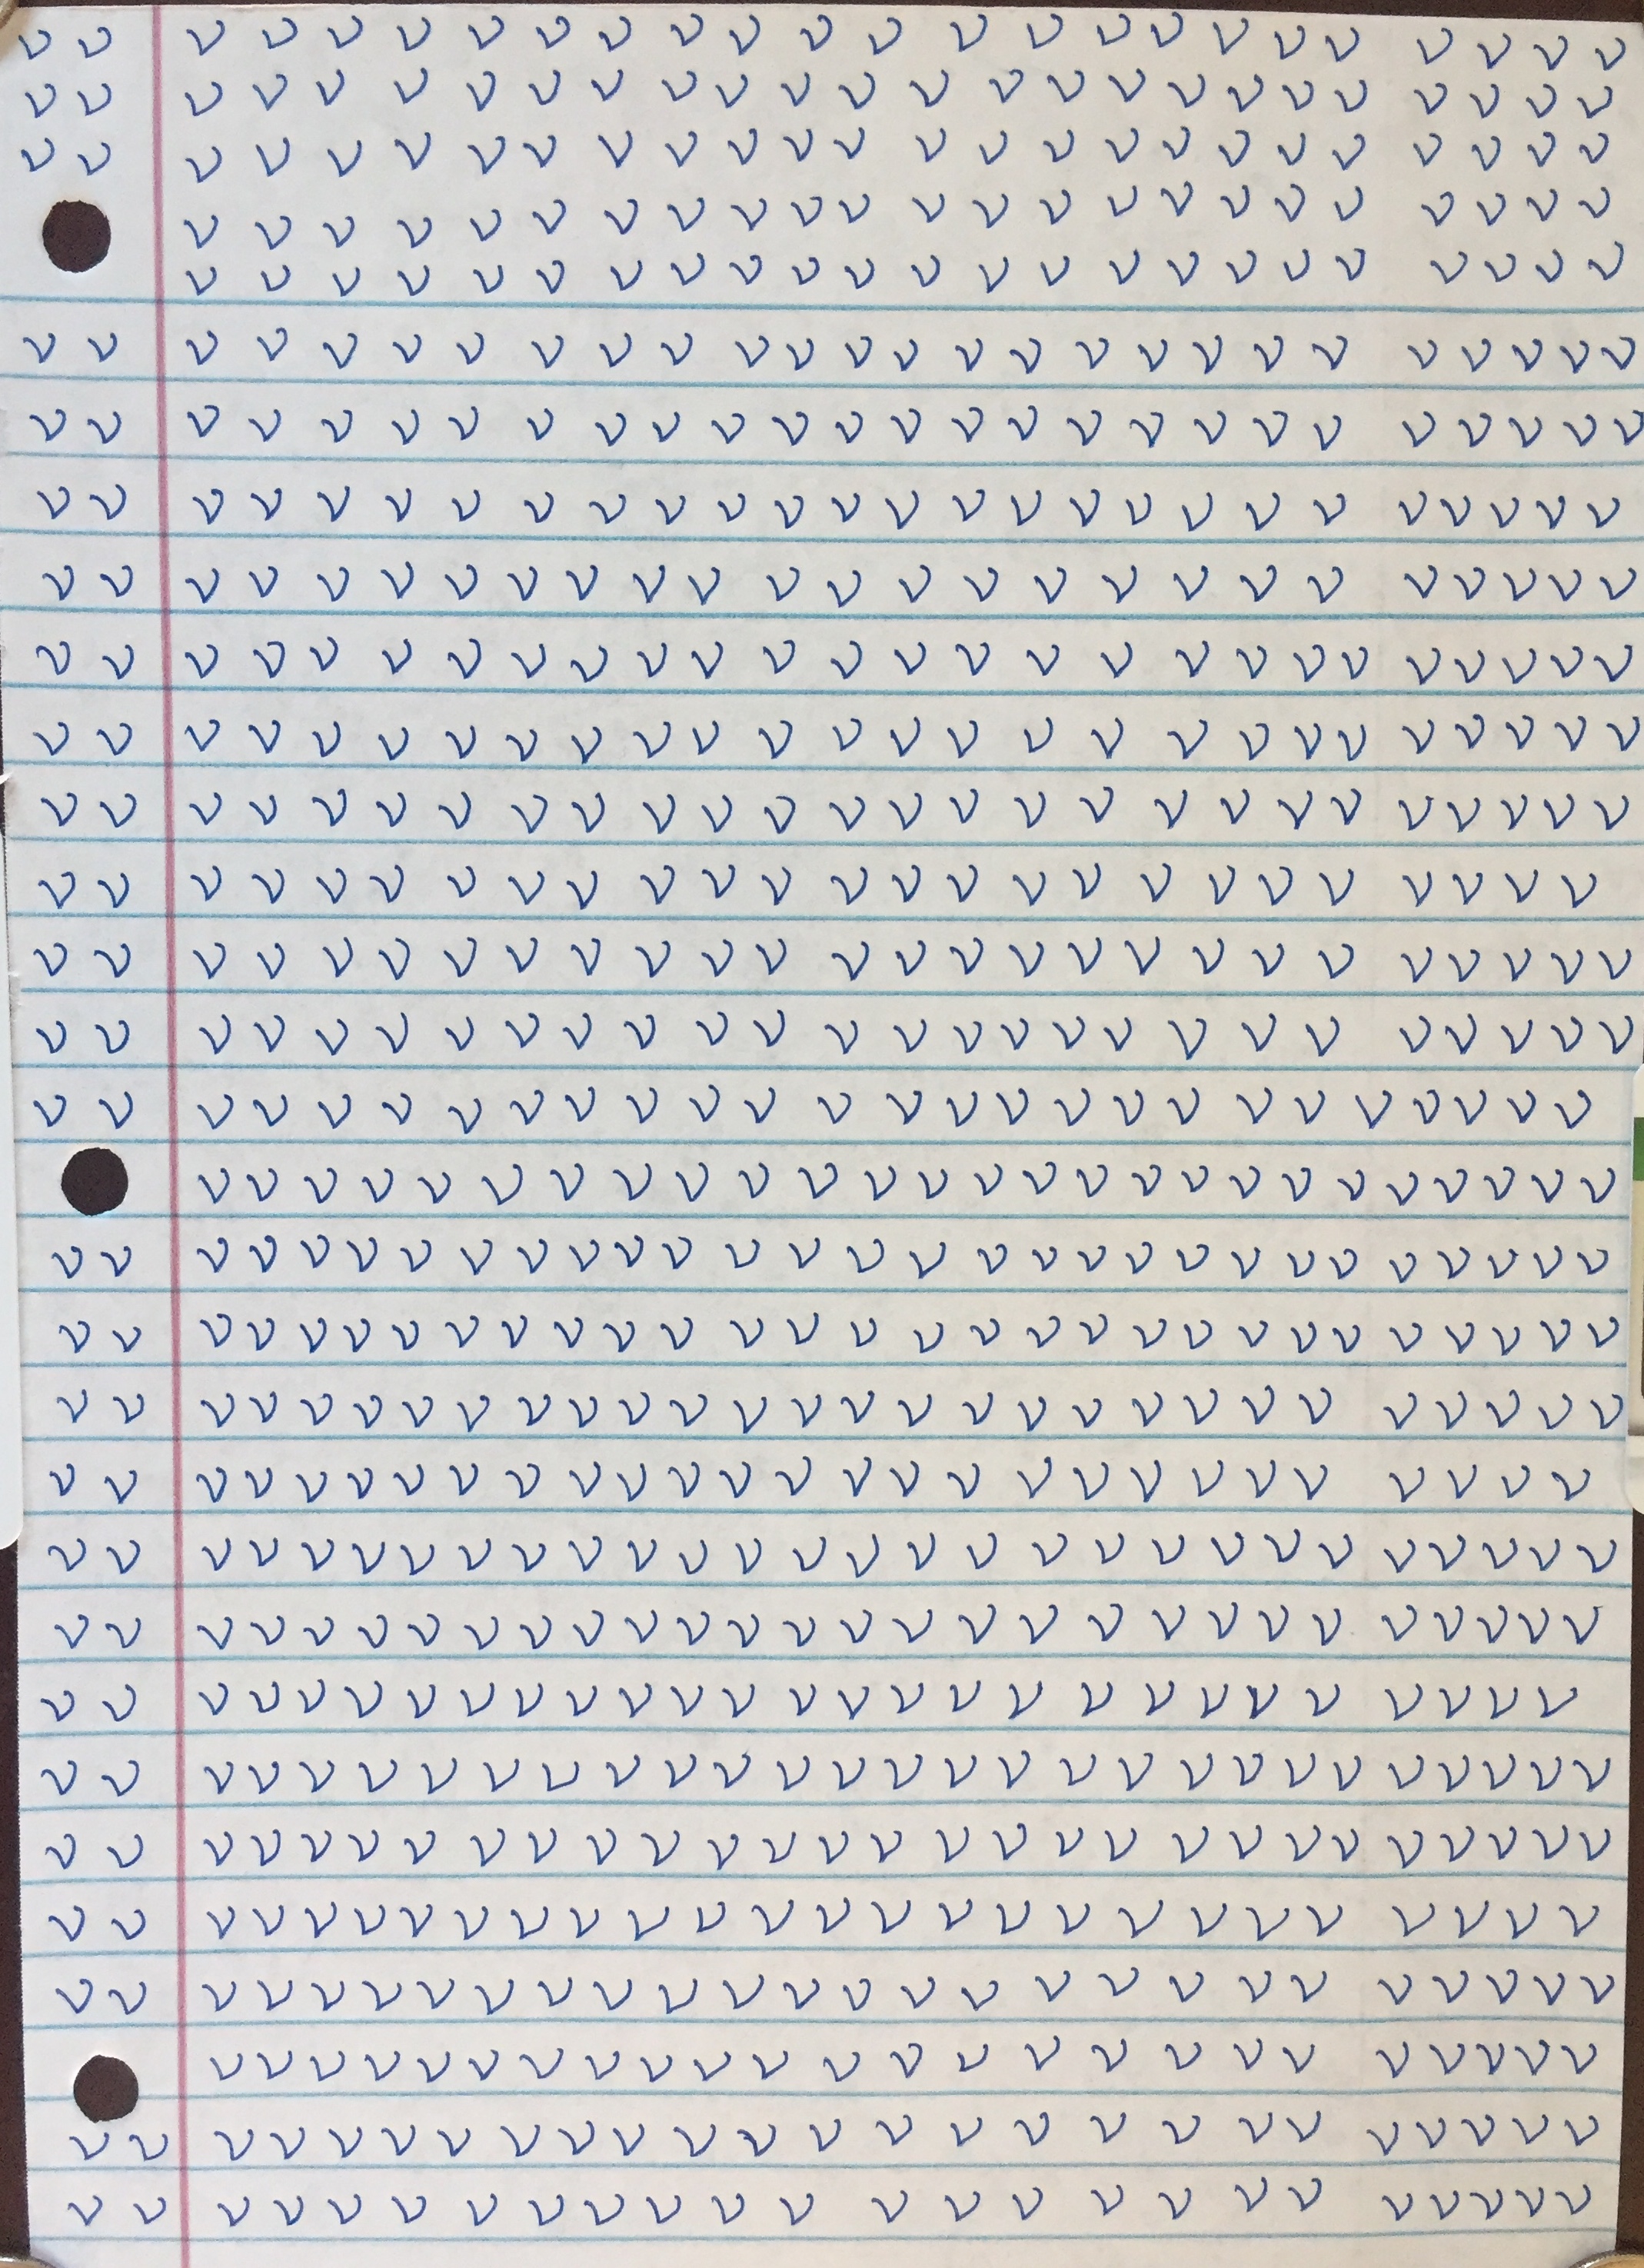 v v v v v v v v v v v v v v v v v v v v v v v v
v v v v v v v v v v v v v v v v v v v v v v v v v
v v v v v v v v v v v v v v v v v v v v v v v v v
v v v v v v v v v v v v v v v v v v v v v v v
v v v v v v v v v v v v v v v v v v v v v v v
v v v v v v v v v v v v v v v v v v v v v v v v v v
v v v v v v v v v v v v v v v v v v v v v v v v v v
v v v v v v v v v v v v v v v v v v v v v v v v v v
v v v v v v v v v v v v v v v v v v v v v v v v v
v v v v v v v v v v v v v v v v v v v v v v v v v v
v v v v v v v v v v v v v v v v v v v v v v v v v v
v v v v v v v v v v v v v v v v v v v v v v v v v v
v v v v v v v v v v v v v v v v v v v v v v v v v
v v v v v v v v v v v v v v v v v v v v v v v v v v
v v v v v v v v v v v v v v v v v v v v v v v v v v
v v v v v v v v v v v v v v v v v v v v v v v v v v
v v v v v v v v v v v v v v v v v v v v v v v v v v
v v v v v v v v v v v v v v v v v v v v v v v v v v v v v
v v v v v v v v v v v v v v v v v v v v v v v v v v v v v
v v v v v v v v v v v v v v v v v v v v v v v v v v v v
v v v v v v v v v v v v v v v v v v v v v v v v v v v
v v v v v v v v v v v v v v v v v v v v v v v v v v v v
v v v v v v v v v v v v v v v v v v v v v v v v v v v v
v v v v v v v v v v v v v v v v v v v v v v v v v v v
v v v v v v v v v v v v v v v v v v v v v v v v v v v v
v v v v v v v v v v v v v v v v v v v v v v v v v v v v
v v v v v v v v v v v v v v v v v v v v v v v v v v
v v v v v v v v v v v v v v v v v v v v v v v v v v
v v v v v v v v v v v v v v v v v v v v v v v v
v v v v v v v v v v v v v v v v v v v v v v v v v
v v v v v v v v v v v v v v v v v v v v v v v v